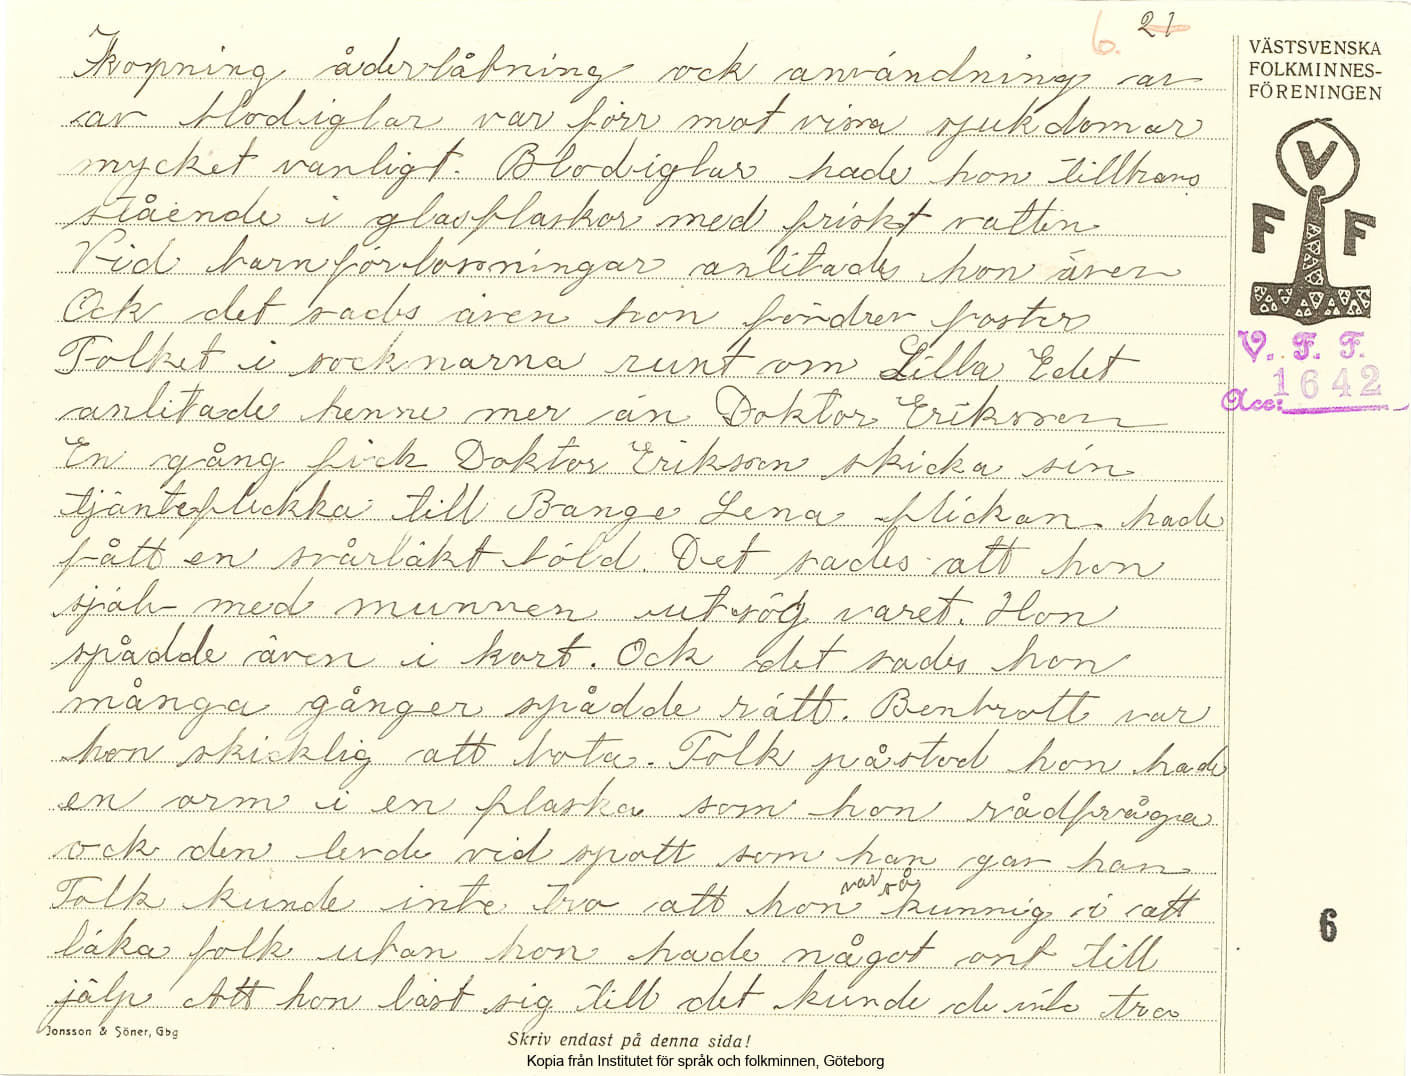 6. 21
VÄSTSVENSKA
FOLKMINNES-
FÖRENINGEN
V
F F
V. F. F.
Acc: 1642
Kopning åderlåtning ock användning av
av blodiglar var förr mot vissa sjukdomar
mycket vanligt. Blodiglar hade hon tillhans
stående i glasflaskor med friskt vatten
Vid barnförlossningar anlitads hon även
Ock det sads även hon fördrev foster
Folket i socknarna runt om Lilla Edet
anlitade henne mer än Doktor Eriksson
En gång fick Doktor Erikson skicka sin
tjänteflickka till Bange Lena flickan hade
fått en svårläkt böld. Det sades att hon
själv med munnen utsög varet. Hon
spådde även i kort. Ock det sades hon
många gånger spådde rätt. Benbrott var
hon skicklig att bota. Folk påstod hon hade
en orm i en flaska som hon rådfråga
ock den levde vid spott som hon gav han
Folk kunde inte tro att hon var så kunnig i att
läka folk utan hon hade något ont till
jälp Att hon läst sig till det kunde de inte tro
6
Jonsson & Söner, Gbg
Skriv endast på denna sida!
Kopia från Institutet för språk och folkminnen, Göteborg